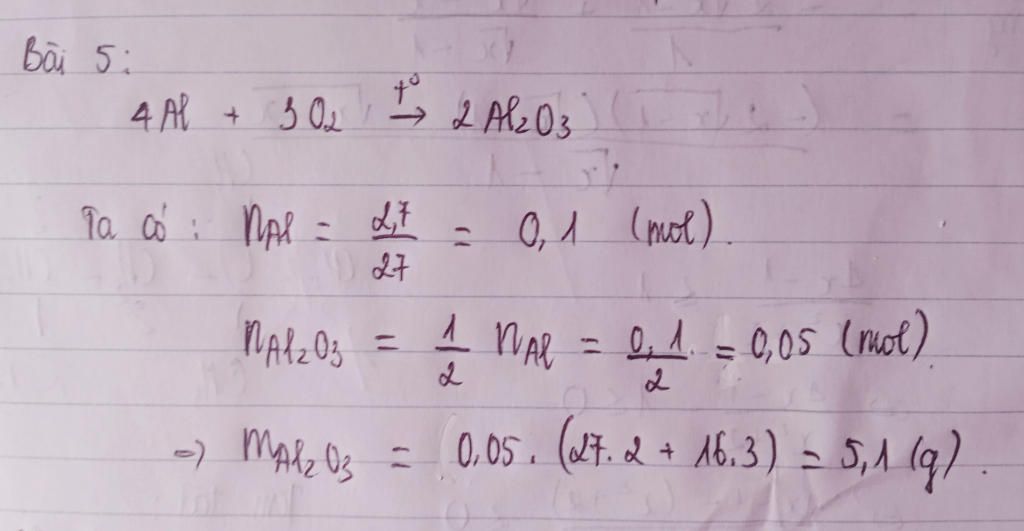 Bài 5:
4Al + 3O₂ →(t°) 2Al₂O₃
Ta có: nAl = 2,7/27 = 0,1 (mol).
nAl₂O₃ = 1/2 nAl = 0,1/2 = 0,05 (mol)
=> mAl₂O₃ = 0,05. (27.2 + 16.3) = 5,1 (g).